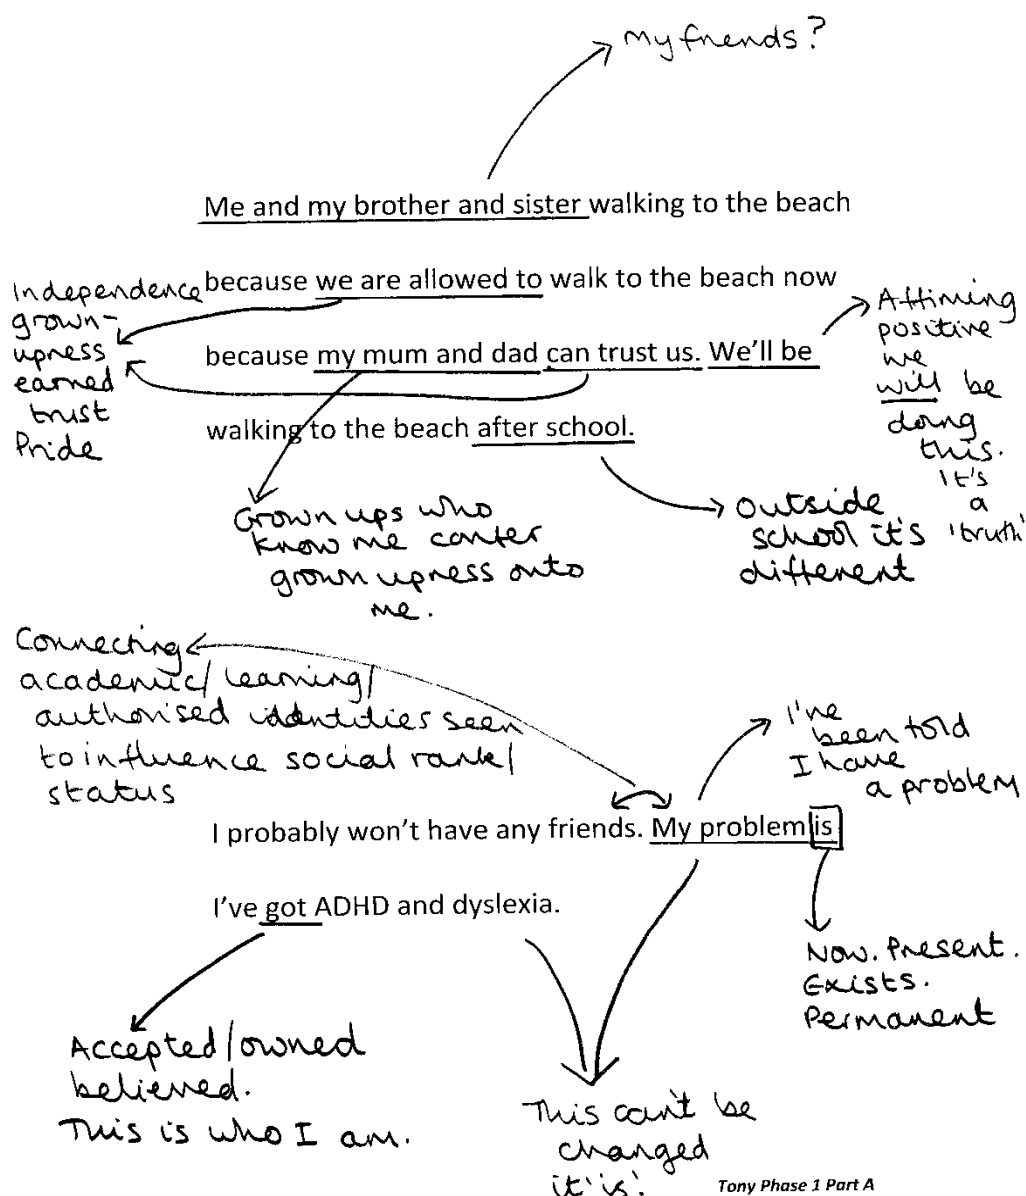 My friends?
Me and my brother and sister walking to the beach
because we are allowed to walk to the beach now
because my mum and dad can trust us. We'll be
walking to the beach after school.
Independence
grown-
upness
earned
trust
Pride
Affiming
positive
we
will be
doing
this.
It's
a
'truth'
Grown ups who
know me confer
grown upness onto
me.
Outside
school it's
different
Connecting
academic/learning/
authorised identities seen
to influence social rank/
status
I've
been told
I have
a problem
I probably won't have any friends. My problem is
I've got ADHD and dyslexia.
Now. Present.
Exists.
Permanent
Accepted/owned
believed.
This is who I am.
This can't be
changed
it 'is'.
Tony Phase 1 Part A